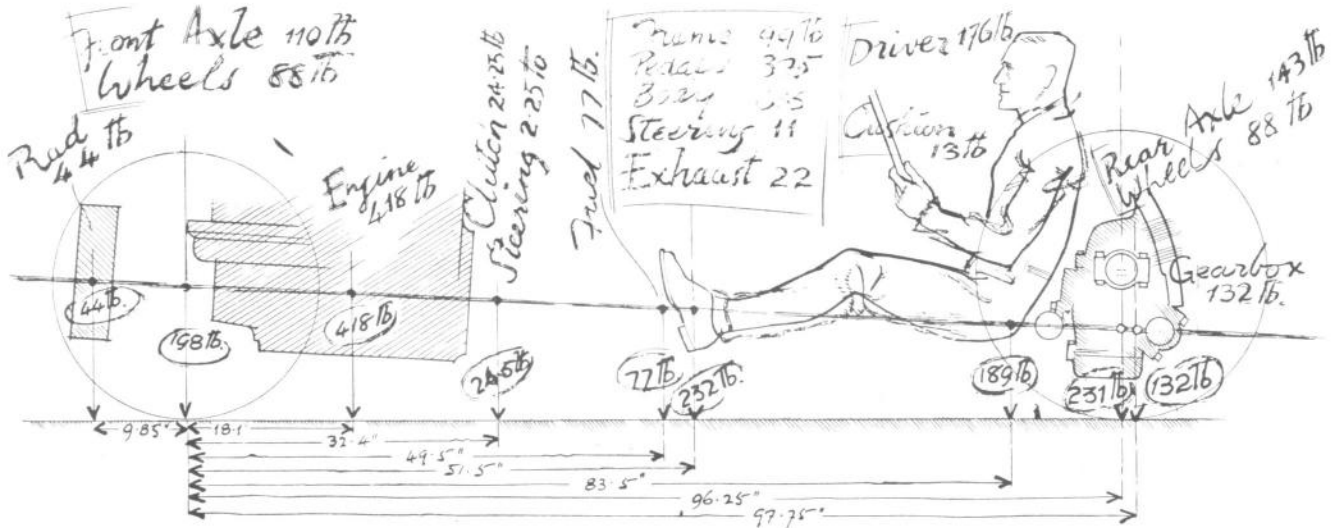 Front Axle 110 lb
Wheels 88 lb
Rad
44 lb
Engine
418 lb
Clutch 24.25 lb
Steering 2.25 lb
Fuel 77 lb.
Frame 99 lb
Pedals
Body
Steering 11
Exhaust 22
Driver 176 lb
Cushion
13 lb
Rear Axle 143 lb
Wheels 88 lb
Gearbox
132 lb.
44 lb.
198 lb.
418 lb
77 lb
232 lb.
189 lb
231 lb
132 lb
9.85"
18.1
32.4"
49.5"
51.5"
83.5"
96.25"
97.75"